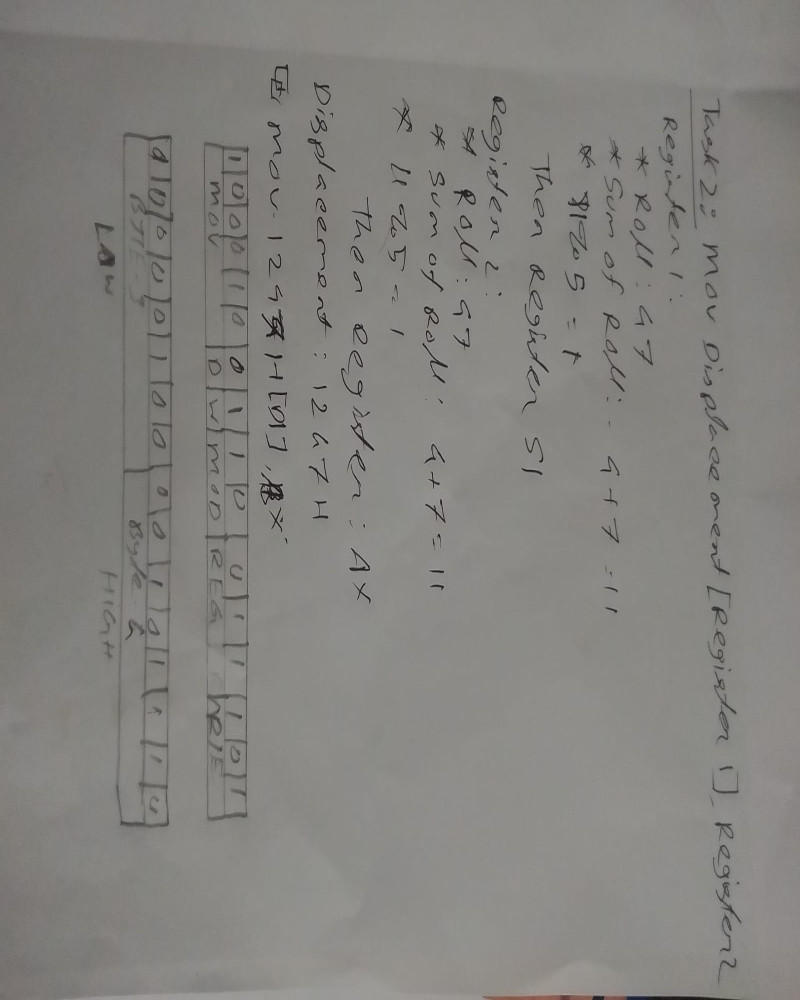 Task 2: Mov Displacement [Register 1], Register2
Register 1:
* Roll: 47
* Sum of Roll: 4+7 = 11
* 11%5 = 1
Then Register SI
Register 2:
* Roll: 47
* Sum of Roll: 4+7 = 11
* 11%5 = 1
Then Register: AX
Displacement: 1247H
Mov. 1247H [DI],
1 0 0 0 1 0 0 1 1 0 0 1 1 1 0 1
MOV D W MOD REG R/E
0 0 0 0 1 0 0 0 0 1 0 1 1 1 0
BYTE-3 Byte 4
LAW HIGH